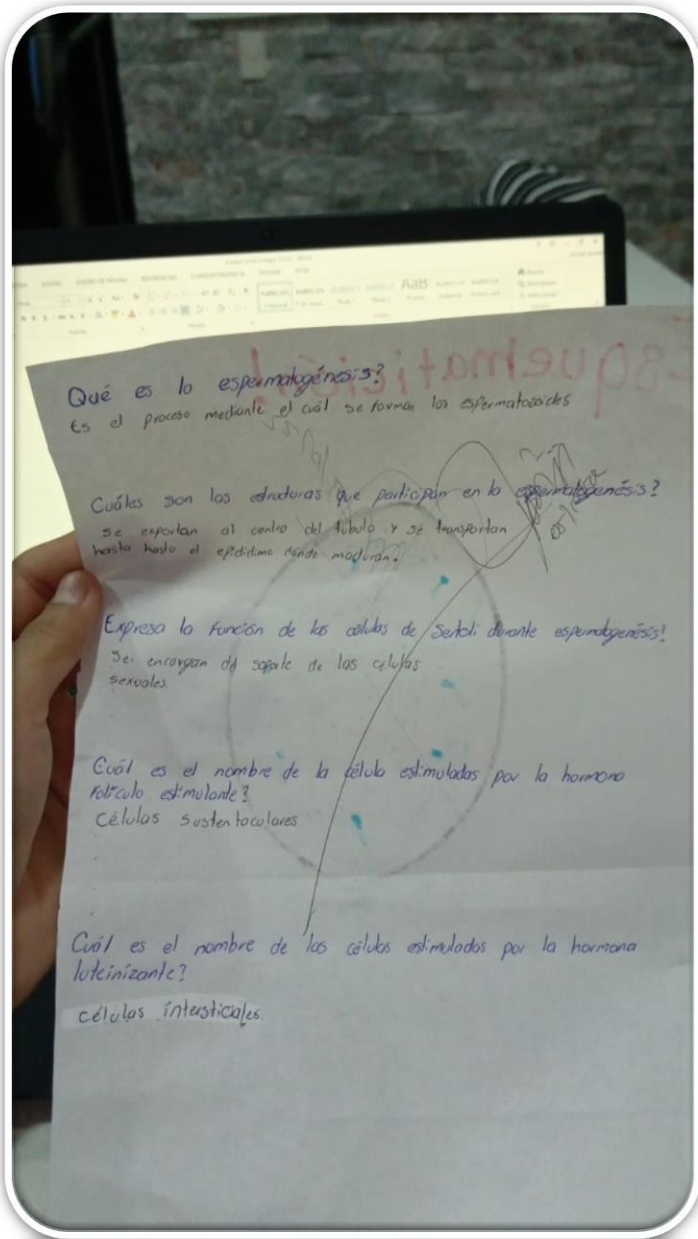 AaB
Esquematición!
Qué es lo espermatogénesis?
Es el proceso mediante el cuál se forman los espermatozoides
Cuáles son las estructuras que participán en la espermatogenésis?
se exportan al centro del túbulo y se transportan
hasta hasta el epidídimo donde maduran.
Expresa la función de las células de Sertoli durante espermatogenésis!
Se encargan del soporte de las células
sexuales.
Cuál es el nombre de la célula estimuladas por la hormona
folículo estimulante?
Células sustentaculares
Cuál es el nombre de las células estimuladas por la hormona
luteinizante?
células intersticiales.